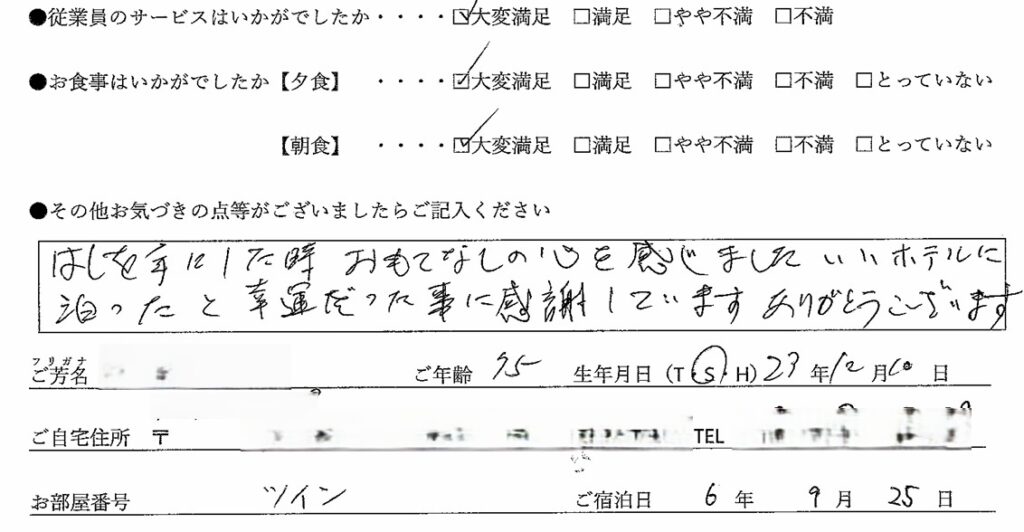 ●従業員のサービスはいかがでしたか・・・・☑大変満足 □満足 □やや不満 □不満
●お食事はいかがでしたか【夕食】 ・・・・☑大変満足 □満足 □やや不満 □不満 □とっていない
【朝食】 ・・・・☑大変満足 □満足 □やや不満 □不満 □とっていない
●その他お気づきの点等がございましたらご記入ください
はしを手にした時 おもてなしの心を感じました いいホテルに
泊ったと幸運だった事に感謝しています ありがとうございます
フリガナ
ご芳名 ご年齢 75 生年月日（T・S・H）23年12月10日
ご自宅住所 〒 TEL
お部屋番号 ツイン ご宿泊日 6年 9月 25日